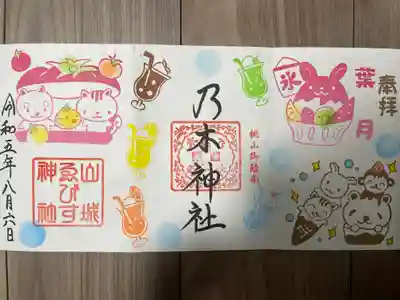 奉拝
葉月
氷
桃山御陵南
乃木神社
山城
ゑびす
神社
令和五年八月六日